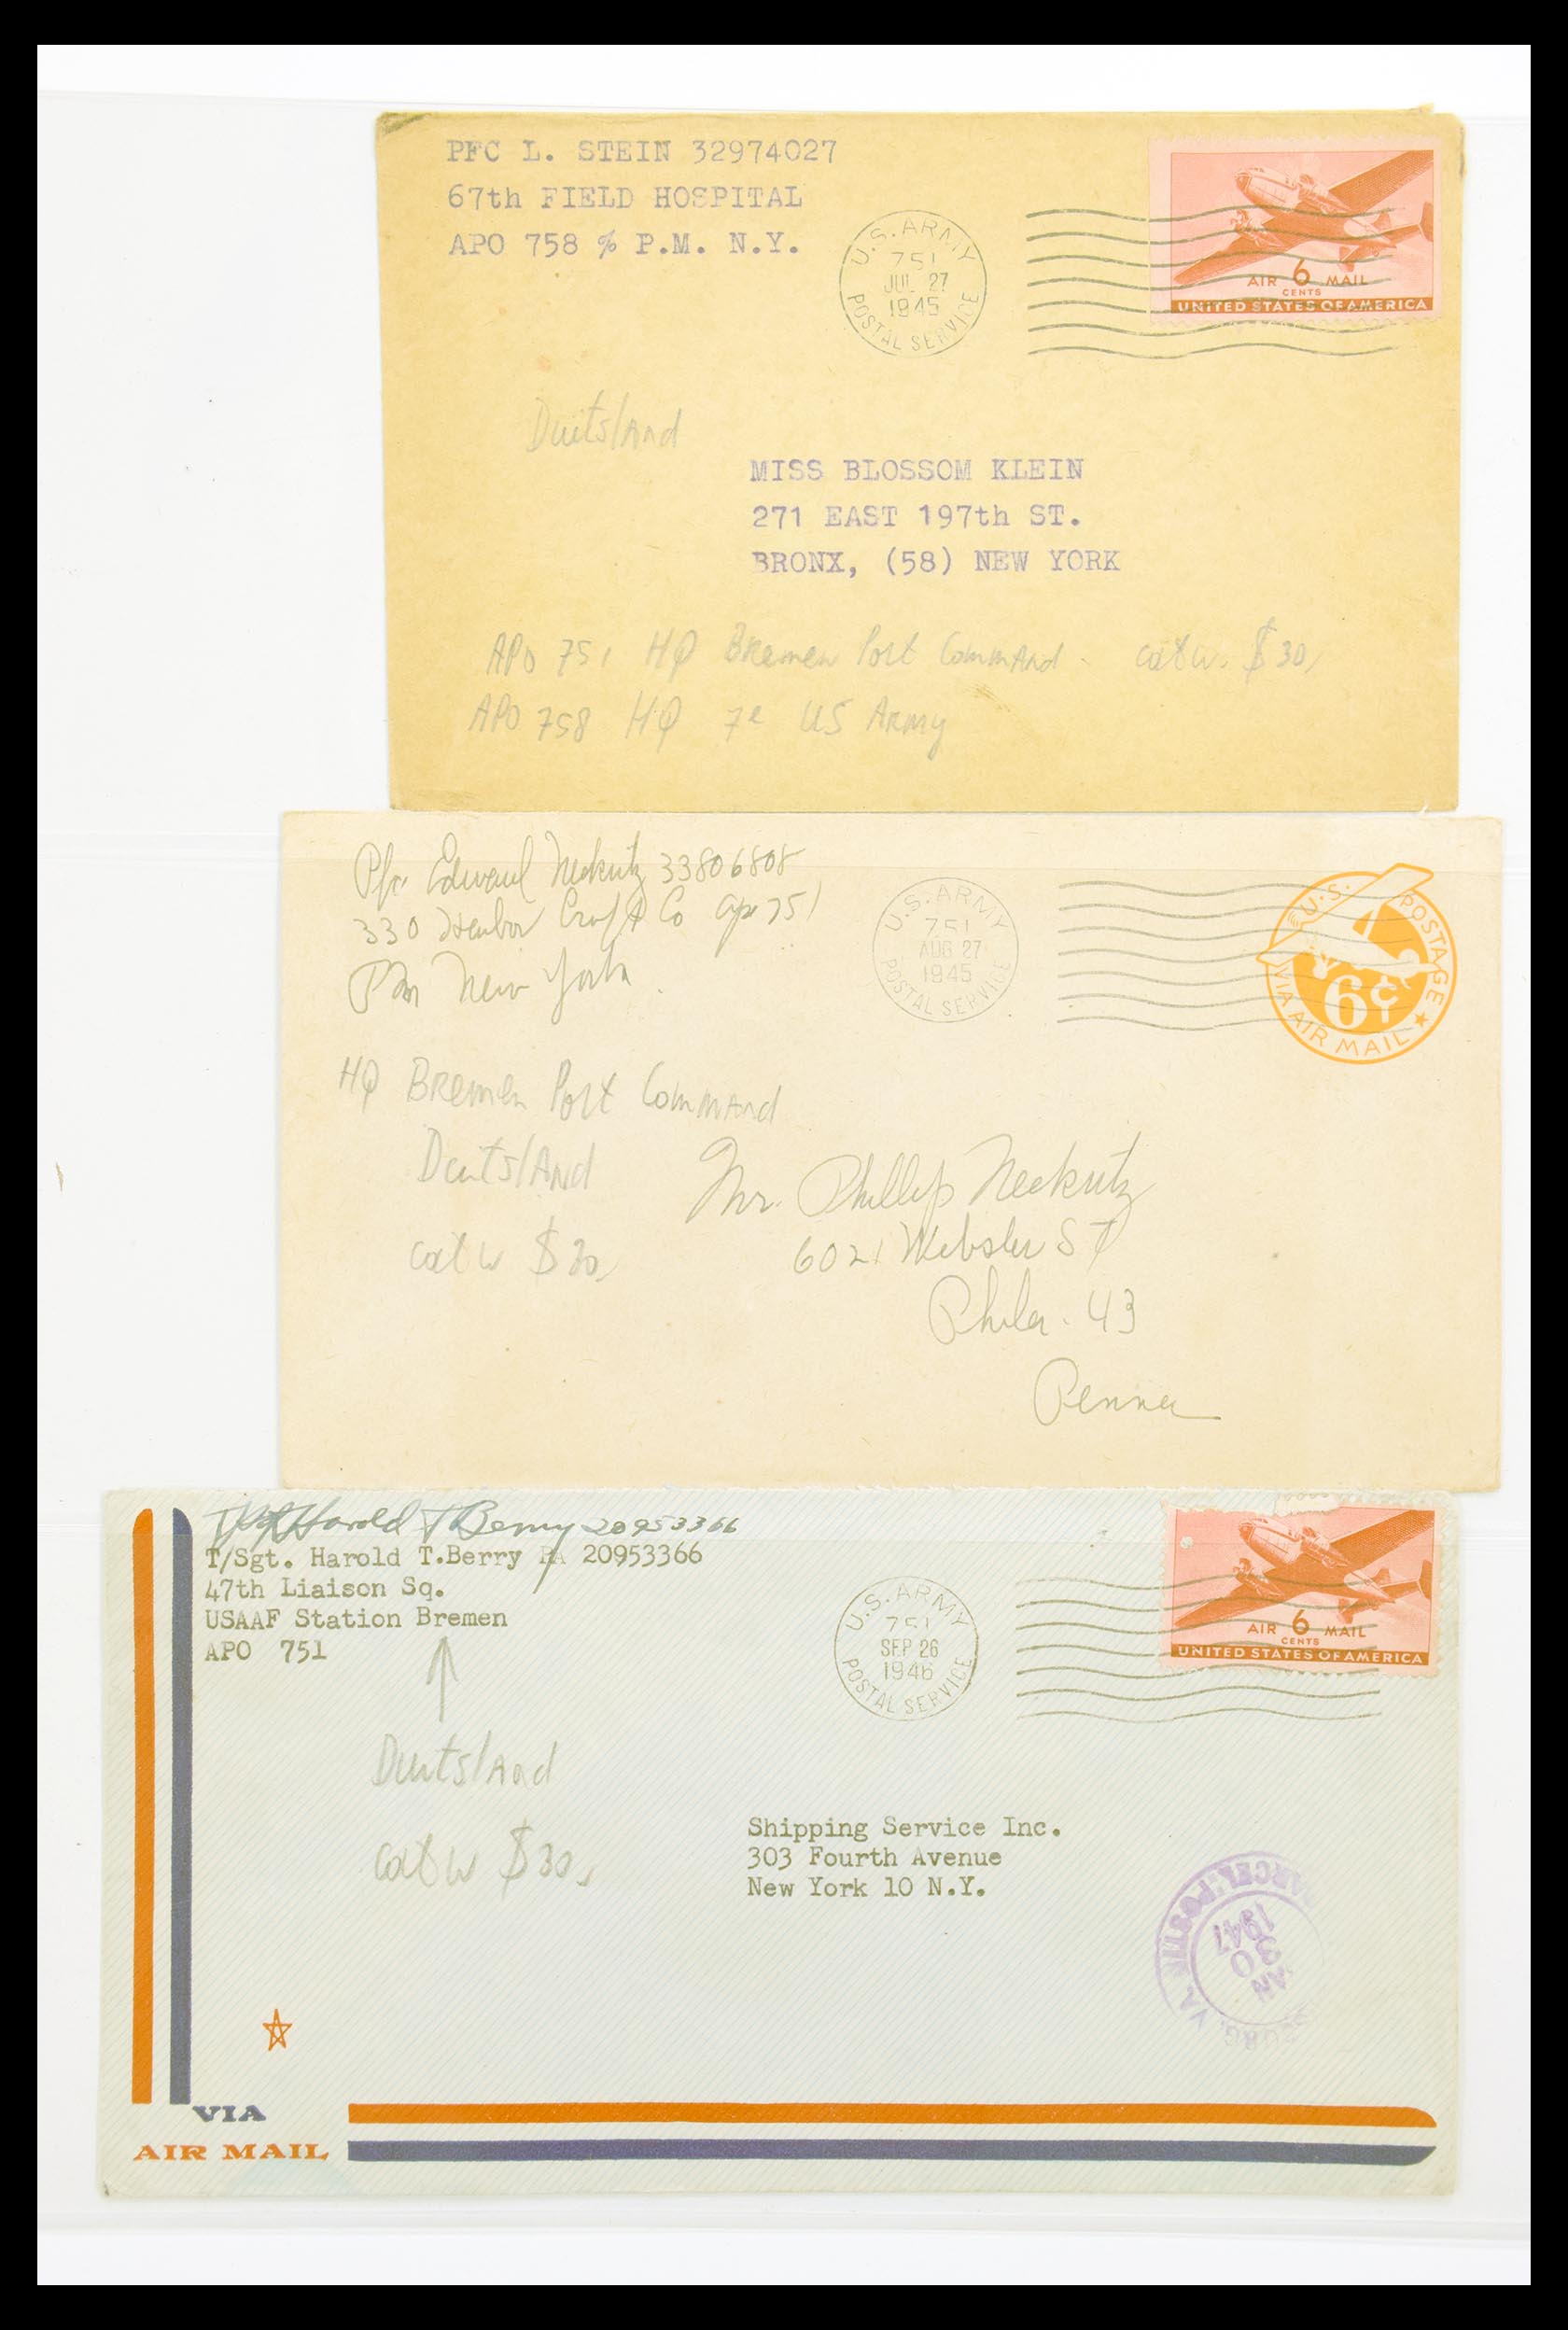 PFC L. STEIN 32974027
67th FIELD HOSPITAL
APO 758 % P.M. N.Y.
U.S. ARMY
751
JUL 27
1945
POSTAL SERVICE
AIR 6 MAIL
CENTS
UNITED STATES OF AMERICA
Duitsland
MISS BLOSSOM KLEIN
271 EAST 197th ST.
BRONX, (58) NEW YORK
APO 751 HQ Bremen Port Command. catw. $30,
APO 758 HQ 7e US Army
Pfc Edward Neckritz 33806808
330 Harbor Craft Co apo 751
PM New York.
U.S. ARMY
751
AUG 27
1945
POSTAL SERVICE
U.S. POSTAGE
6¢
VIA AIR MAIL
HQ Bremen Port Command
Duitsland
catw $30,
Mr. Phillip Neckritz
6021 Webster St
Phila. 43
Penna
Harold T Berry 20953366
T/Sgt. Harold T.Berry RA 20953366
47th Liaison Sq.
USAAF Station Bremen
APO 751
U.S. ARMY
751
SEP 26
1946
POSTAL SERVICE
AIR 6 MAIL
CENTS
UNITED STATES OF AMERICA
Duitsland
catw $30,
Shipping Service Inc.
303 Fourth Avenue
New York 10 N.Y.
PARCEL POST
JAN
30
1947
VA.
VIA
AIR MAIL